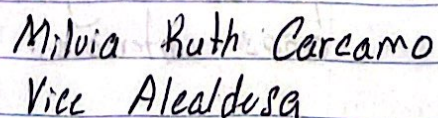 Milvia Ruth Carcamo
Vice Alcaldesa